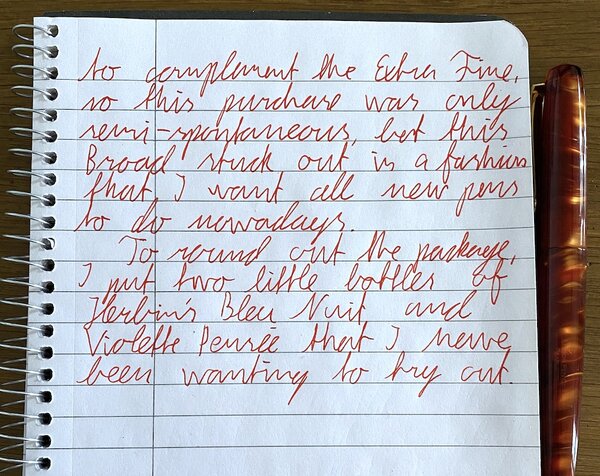 to complement the Extra Fine,
so this purchase was only
semi-spontaneous, but this
Broad stuck out in a fashion
that I want all new pens
to do nowadays.
To round out the package,
I put two little bottles of
Herbin's Bleu Nuit and
Violette Pensée that I
been wanting to try out.